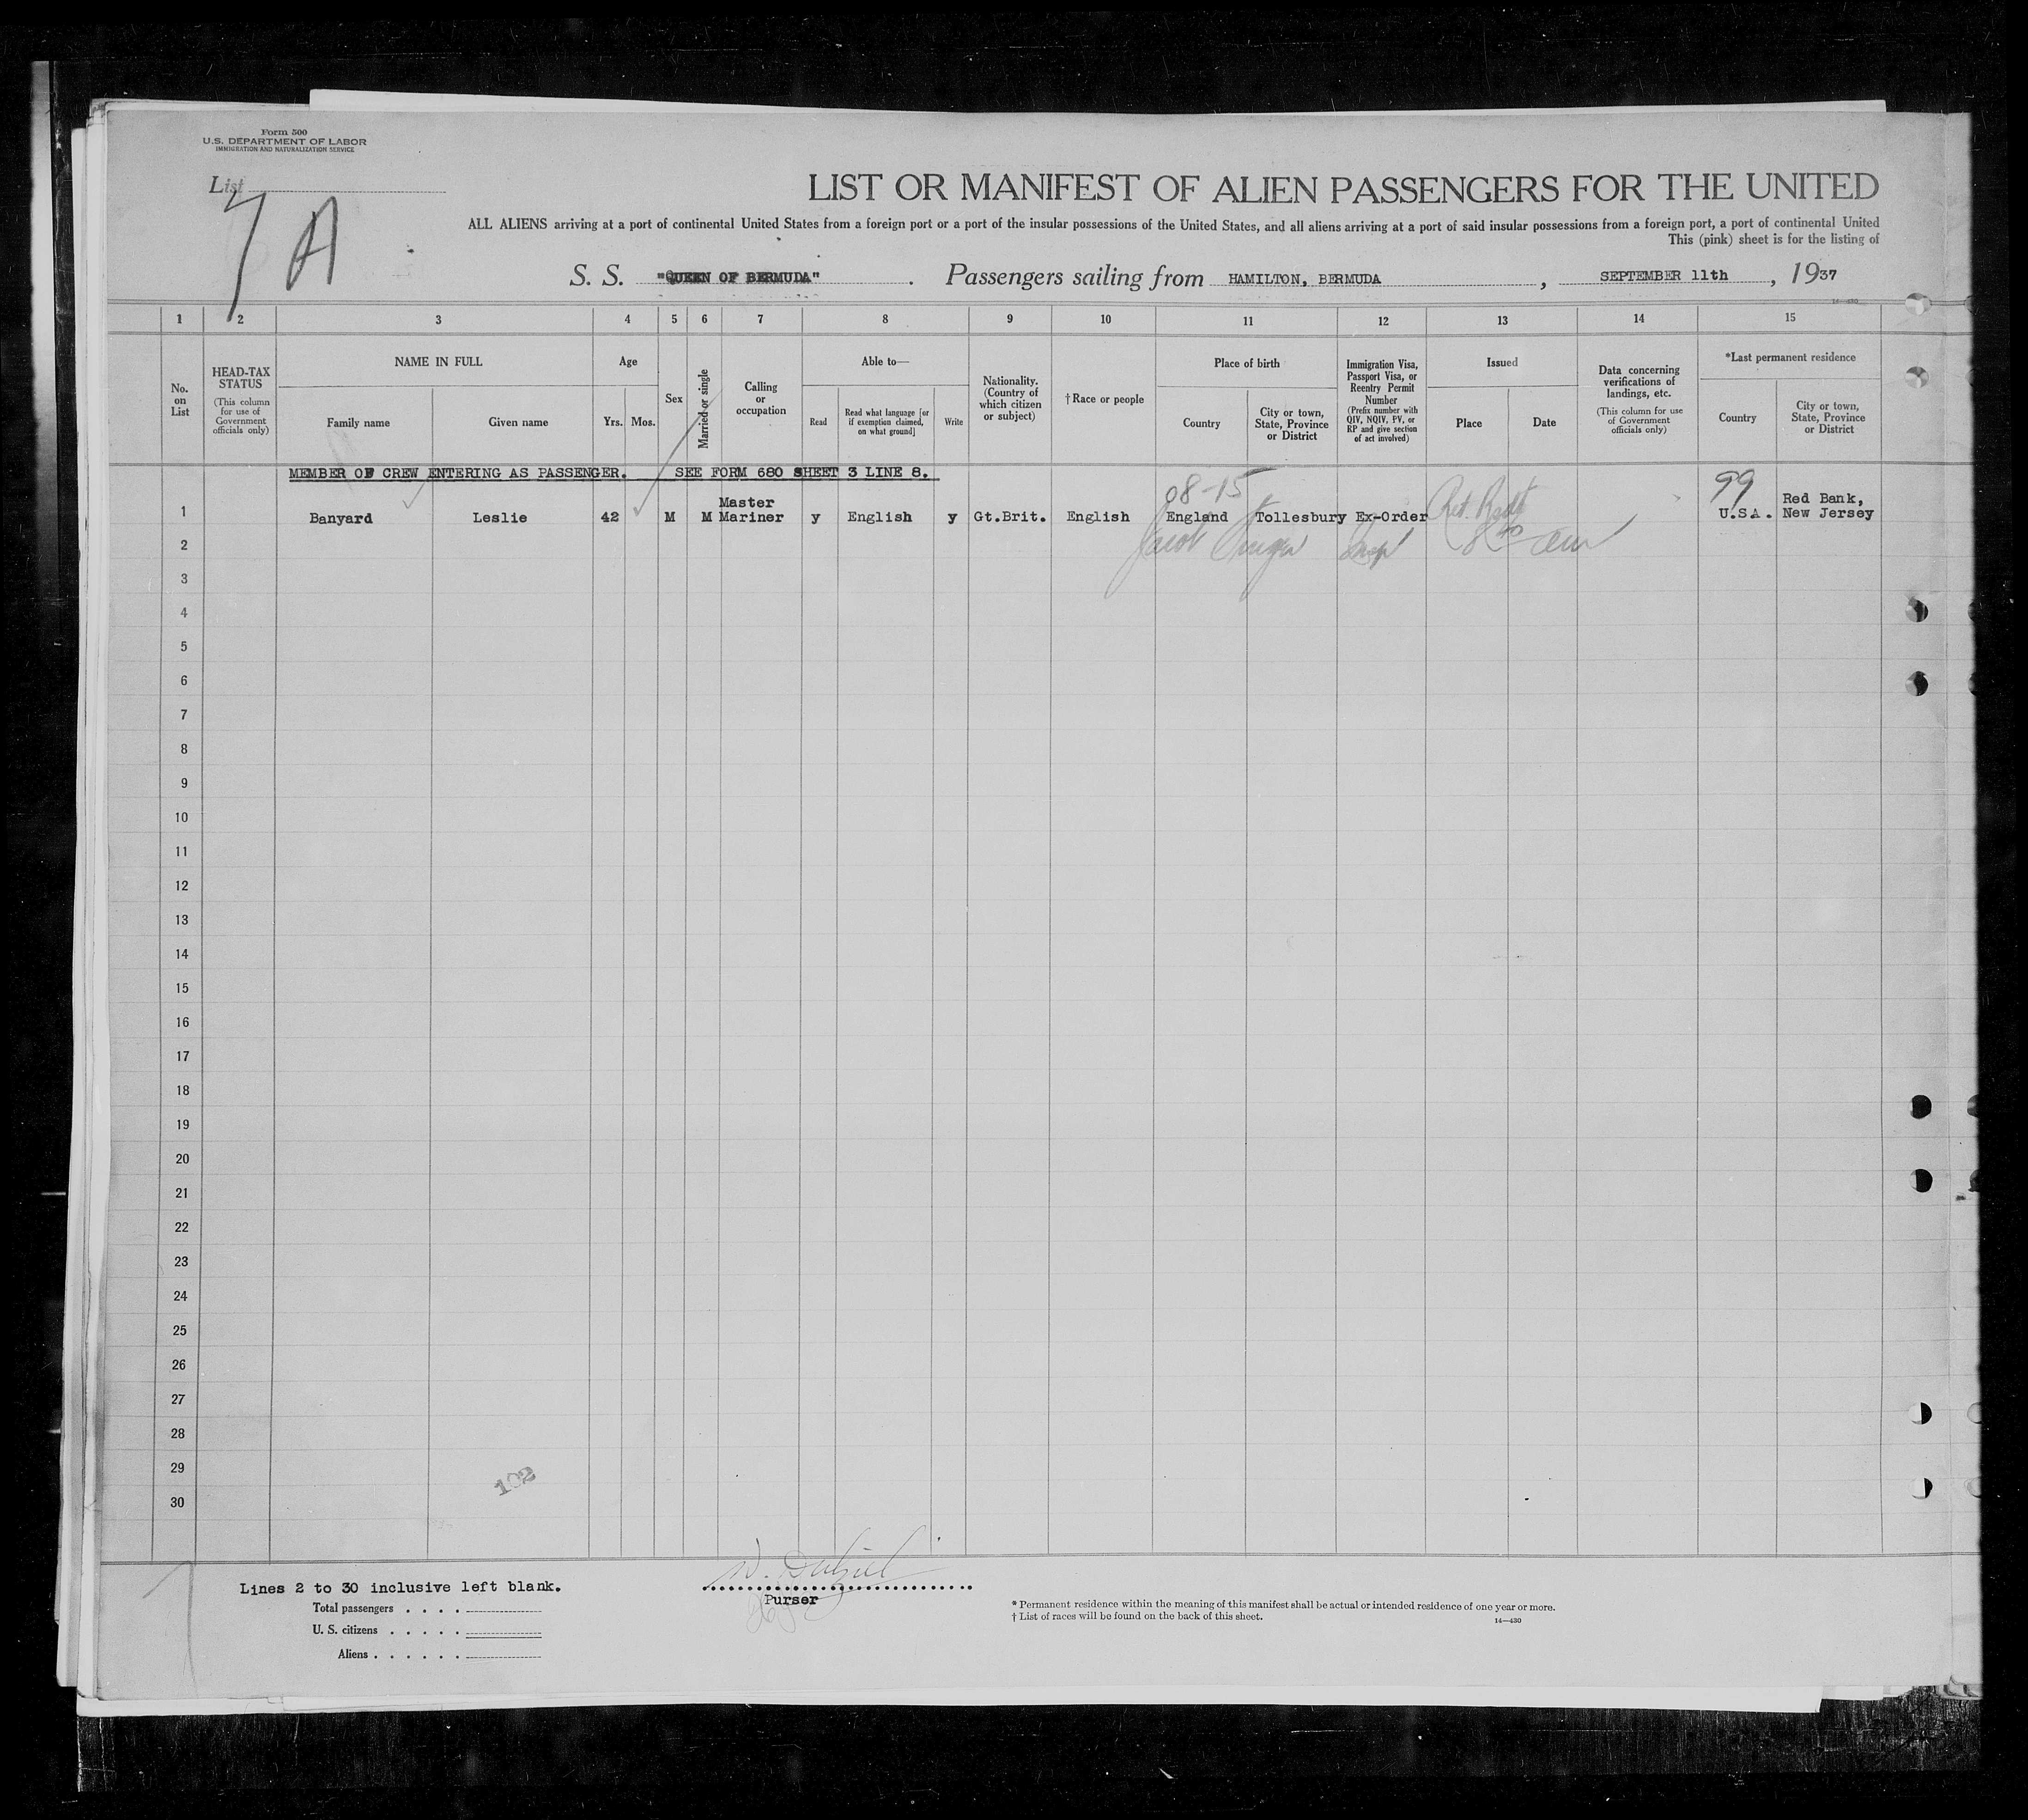 Form 500
U.S. DEPARTMENT OF LABOR
IMMIGRATION AND NATURALIZATION SERVICE
List
7 A
LIST OR MANIFEST OF ALIEN PASSENGERS FOR THE UNITED
ALL ALIENS arriving at a port of continental United States from a foreign port or a port of the insular possessions of the United States, and all aliens arriving at a port of said insular possessions from a foreign port, a port of continental United
This (pink) sheet is for the listing of
S. S. "QUEEN OF BERMUDA". Passengers sailing from HAMILTON, BERMUDA, SEPTEMBER 11th, 1937
14-430
1 2 3 4 5 6 7 8 9 10 11 12 13 14 15
No. on List
HEAD-TAX STATUS (This column for use of Government officials only)
NAME IN FULL
Family name
Given name
Age
Yrs. Mos.
Sex
Married or single
Calling or occupation
Able to—
Read
Read what language [or if exemption claimed, on what ground]
Write
Nationality. (Country of which citizen or subject)
†Race or people
Place of birth
Country
City or town, State, Province or District
Immigration Visa, Passport Visa, or Reentry Permit Number (Prefix number with QIV, NQIV, PV, or RP and give section of act involved)
Issued
Place
Date
Data concerning verifications of landings, etc. (This column for use of Government officials only)
*Last permanent residence
Country
City or town, State, Province or District
MEMBER OF CREW ENTERING AS PASSENGER. SEE FORM 680 SHEET 3 LINE 8.
08-15
99
1 Banyard Leslie 42 M M Master Mariner y English y Gt.Brit. English England Tollesbury Ex-Order U.S.A. Red Bank, New Jersey
2
Jacob Insp
3
4
5
6
7
8
9
10
11
12
13
14
15
16
17
18
19
20
21
22
23
24
25
26
27
28
29
30
102
Lines 2 to 30 inclusive left blank.
Purser
Total passengers
U. S. citizens
Aliens
* Permanent residence within the meaning of this manifest shall be actual or intended residence of one year or more.
† List of races will be found on the back of this sheet.
14—430